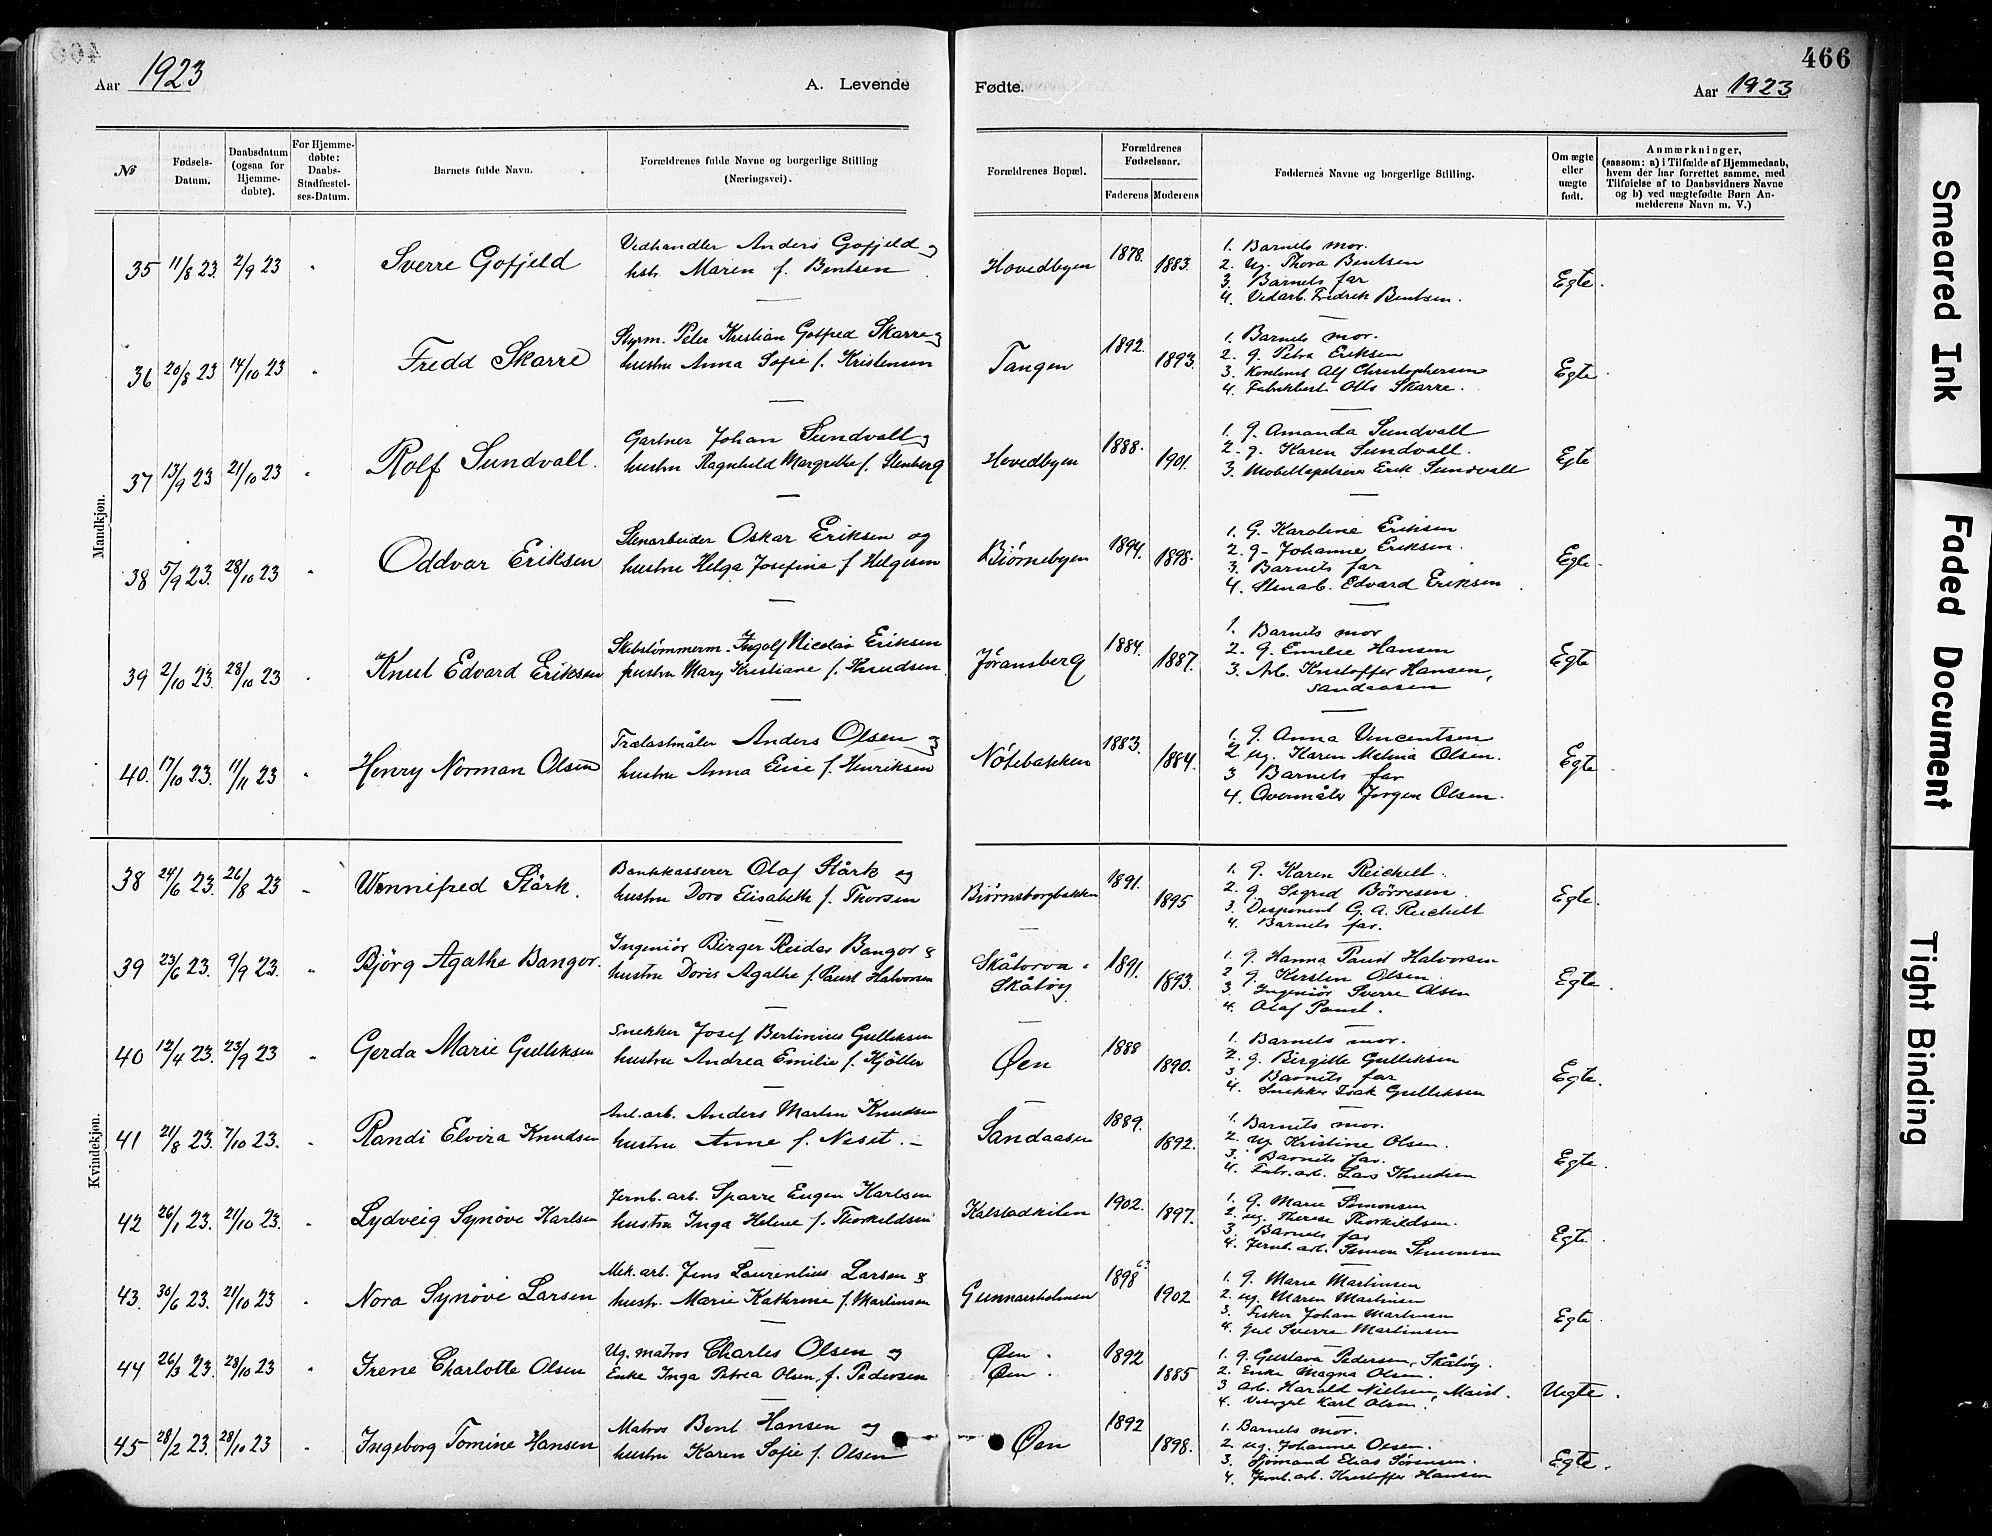 466
Aar 1923
A. Levende
Fødte.
Aar 1923
№
Fødsels-Datum.
Daabsdatum (ogsaa for Hjemme-døbte).
For Hjemme-døbte: Daabs-Stadfæstel-ses-Datum.
Barnets fulde Navn.
Forældrenes fulde Navne og borgerlige Stilling (Næringsvei).
Forældrenes Bopæl.
Forældrenes Fødselsaar.
Faderens
Moderens
Faddernes Navne og borgerlige Stilling.
Om ægte eller uægte født.
Anmærkninger,
(saasom: a) i Tilfælde af Hjemmedaab, hvem der har forrettet samme, med Tilføielse af to Daabsvidners Navne og b) ved uægtefødte Børn An-melderens Navn m. V.)
Mandkjøn.
35 11/8 23. 2/9 23 " Sverre Gofjeld
Vedhandler Anders Gofjeld og
hstr. Maren f. Bentsen
Hovedbyen 1878. 1883.
1. Barnets mor.
2. Ug. Thora Bentsen
3. Barnets far
4. Vedarb. Fredrik Bentsen.
Egte.
36 20/8 23 14/10 23 " Fredd Skarre
Styrm. Peter Kristian Gotfred Skarre og
hustru Anna Sofie f. Kristensen
Tangen 1892. 1893.
1. Barnets mor.
2. g. Petra Eriksen
3. Kontorist Alf Christophersen
4. Fabrikbest. Otto Skarre.
Egte.
37 13/9 23 21/10 23 " Rolf Sundvall.
Gartner Johan Sundvall og
hustru Ragnhild Margrethe f. Stenberg
Hovedbyen 1888. 1901.
1. g. Amanda Sundvall
2. g. Karen Sundvall.
3. Møbeltapetserer Erik Sundvall
Egte
38 5/9 23. 28/10 23 " Oddvar Eriksen
Stenarbeider Oskar Eriksen og
hustru Helga Josefine f. Helgesen
Bjørnebyen 1894. 1898.
1. G. Karoline Eriksen
2. g. Johanne Eriksen.
3. Barnets far
4. Stenarb. Edvard Eriksen.
Egte.
39 2/10 23. 28/10 23 " Knut Edvard Eriksen
Skibstømmerm. Ingolf Nicolai Eriksen
hustru Mary Kristiane f. Knudsen
Jøransberg 1884. 1887.
1. Barnets mor
2. g. Emilie Hansen
3. Arb. Kristoffer Hansen,
Sandaasen
Egte
40. 17/10 23. 11/11 23 " Henry Norman Olsen
Trælastmåler Anders Olsen og
hustru Anna Elise f. Henriksen
Nøtebakken 1883. 1884.
1. g. Anna Vincentsen
2. ug. Karen Melina Olsen.
3 Barnets far
4. Overmåler Jørgen Olsen.
Egte
Kvindekjøn.
38 24/6 23. 26/8 23 " Wennifred Stårk.
Bankkasserer Olaf Stårk og
hustru Doro Elisabeth f. Thorsen
Bjørnsborgbakken 1891. 1895
1. g. Karen Reichelt.
2. g. Sigrid Børresen
3. Disponent G. A. Reichelt
4. Barnets far.
Egte.
39 23/6 23. 9/9 23. " Bjørg Agathe Bangor.
Ingeniør Birger Reidar Bangor &
hustru Doris Agathe f. Paust Halvorsen
Skåtorva
Skåtøy 1891. 1893.
1. g. Hanna Paust Halvorsen
2. g. Kirsten Olsen.
3. Ingeniør Sverre Olsen
4. Olaf Paust.
Egte.
40 12/4 23. 23/9 23 " Gerda Marie Gulleksen
Snekker Josef Bertinius Gulleksen
hustru Andrea Emilie f. Kjøller
Øen 1888 1890.
1. Barnets mor.
2. g. Birgitte Gulleksen
3. Barnets far
4. Snekker Isak Gulleksen
Egte.
41 21/8 23. 7/10 23. " Randi Elvira Knudsen
Anl.arb. Anders Martin Knudsen
hustru Anne f. Neset.
Sandaasen 1889. 1892.
1. Barnets mor.
2. ug. Kristine Olsen.
3. Barnets far.
4. Fabr. arb. Lars Knudsen
Egte.
42 26/1 23. 21/10 23. " Lydveig Synøve Karlsen
Jernb. arb. Sparre Eugen Karlsen
hustru Inga Helene f. Thorkildsen
Kalstadkilen 1902. 1897.
1. g. Marie Simonsen
2. ug. Therese Thorkildsen.
3. Barnets far
4. Jernb. arb. Simon Simonsen
Egte.
43. 30/6 23. 21/10 23 " Nora Synøve Larsen
Mek. arb. Jens Laurentius Larsen &
hustr. Marie Kathrine f. Martinsen
Gunnarsholmen 1898 1902
1. g. Marie Martinsen
2. ug. Maren Martinsen
3. Fisker Johan Martinsen
4. Sverre Martinsen
Egte.
44 26/3 23. 28/10 23 " Irene Charlotte Olsen
Ug. matros Charles Olsen og
Enke Inga Petrea Olsen, f. Pedersen
Øen.
Øen. 1892 1885
1. g. Gustava Pedersen, Skåtøy.
2. Enke Magna Olsen.
3 arb. Harald Nielsen,
4. Karl Olsen
Uegte.
45 28/2 23. 28/10 23 " Ingeborg Tomine Hansen
Matros Bent Hansen og
hustru Karen Sofie f. Olsen
Øen 1892 1898.
1. Barnets mor.
2. ug. Johanne Olsen.
3. Sjømand Elias Sørensen.
4. Jernb. arb. Kristoffer Hansen
Egte.
Smeared Ink
Faded Document
Tight Binding